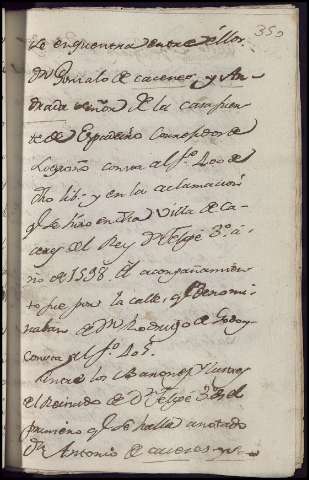 350
se enquentra entre ellos
Dn Gonzalo de caceres y An-
drada señor de la campien
te de Espadero Correxidor de
Logroño consta al fo. 400 de
dho lib. y en la aclamacion
q. se hizo en dha Villa de Ca-
ceres del Rey Dn Felipe 3o. a-
ño de 1598. El acompañamien
to fue por la calle q. denomi-
naban de Dn Rodrigo de Godoy
Consta al fo. 401.
entre los Varones Ylustres
el Reinado de Dn Felipe 3o. el
primero q. se halla anotado
Dn Antonio de caceres